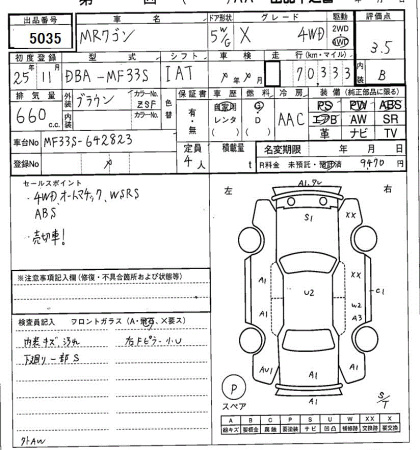 出品番号 車名 ドア形状 グレード 駆動 評価点
5035 MRワゴン 5W/G X 4WD 2WD 4WD 3.5
初度登録 型式 シフト 車検 走行(km・マイル) 内装
25年11月 DBA-MF33S IAT 年 月 70,333 B
排気量 外装 ブラウン カラーNo. ZSF 色替
660 c.c. 内装 カラーNo.
保証書 車歴 燃料 冷房 装備(純正部品に限る)
有・無 自家用 レンタ (D) G D AAC PS PW ABS
エアB AW SR
革 ナビ TV
車台No MF33S-642823
登録No
定員 4人 積載量 t 名変期限 年 月 日
R料金 未預託・預託済 9470円
セールスポイント
・4WDオートマチック、WSRS
ABS
・売切車!
※注意事項記入欄(修復・不具合箇所および状態等)
検査員記入 フロントガラス(A・飛石、×要ス)
内装キズ ヨゴレ 右Fピラー小U
下廻り一部S
外AW
左 右
A1,
S1
XX XX
A1 A1
U2
C1
W2
A3
A1 XX
AU1 A1 A1
A1
P
スペア
S/T
A B C P S U W X XX ×
線キズ 腐食 要塗装 サビ 凹凸 補修跡 要交換